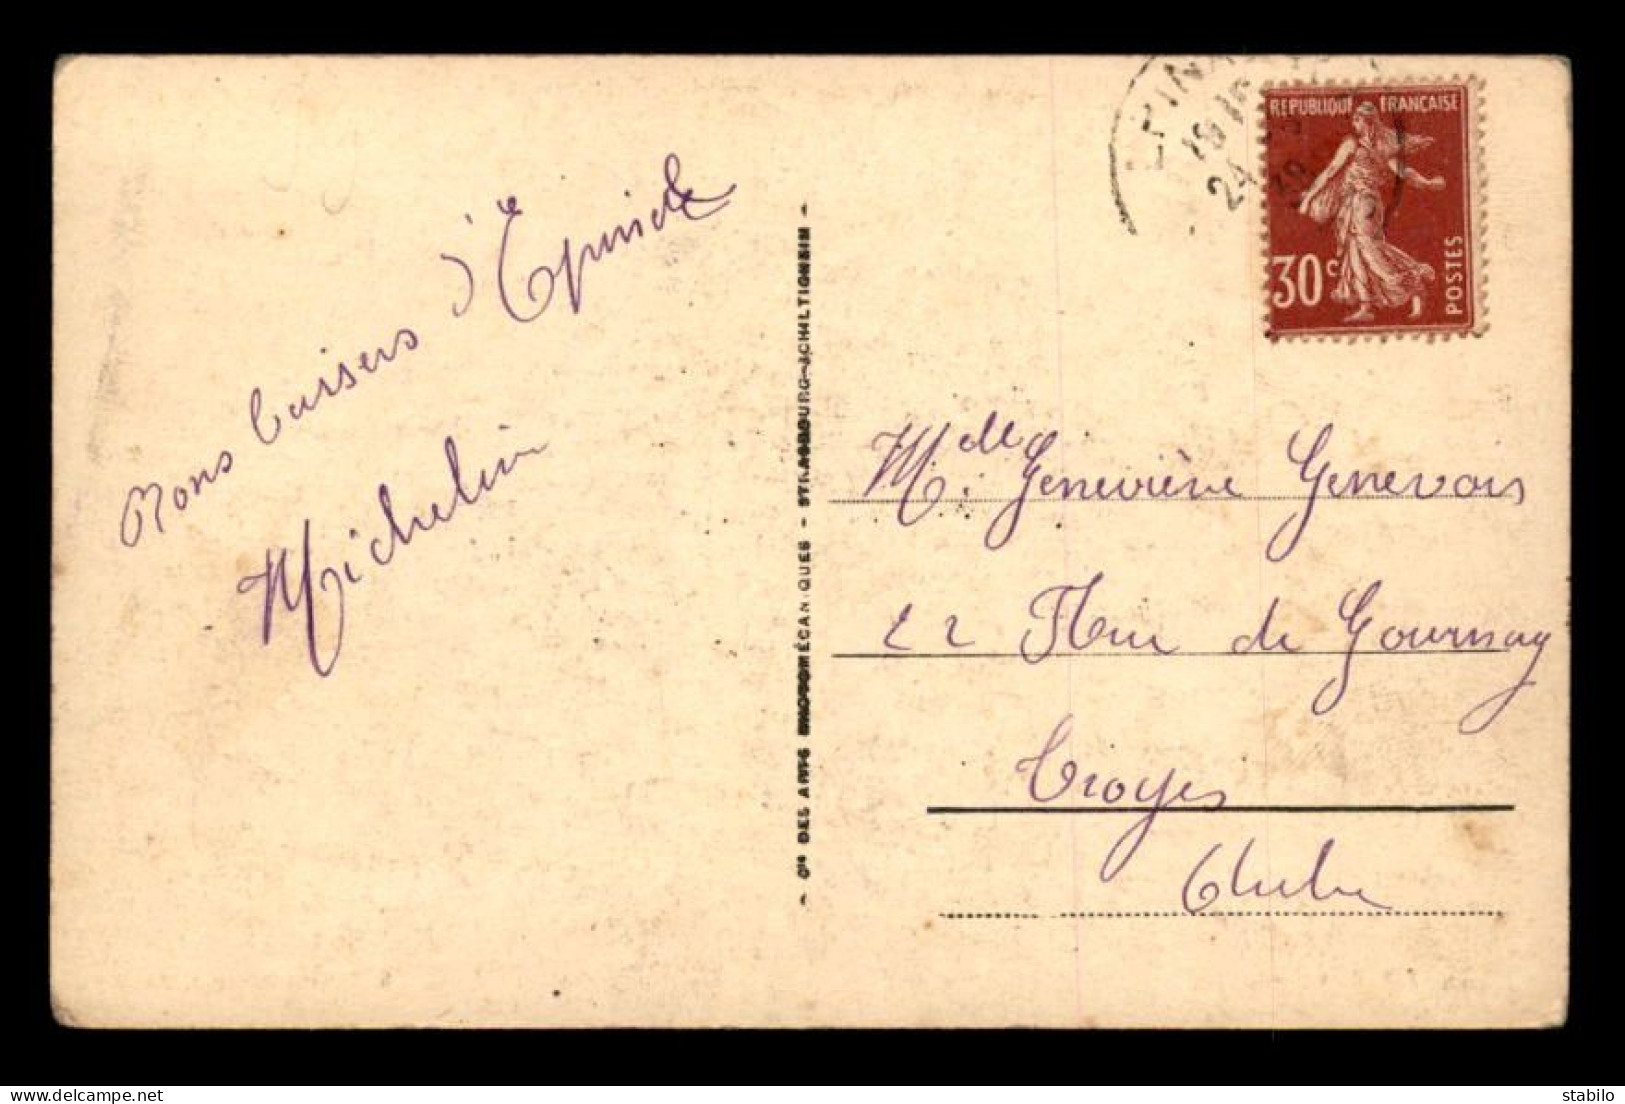 Mons baisers d'Epinal
Michelin
- Cie DES ARTS PHOTOMÉCANIQUES - STRASBOURG-SCHILTIGHEIM -
EPINAL
18 15
24
RÉPUBLIQUE FRANÇAISE
30c
POSTES
Mdelle Geneviève Genevois
22 Rue de Gournay
Troyes
Aube
www.delcampe.net
stabilo